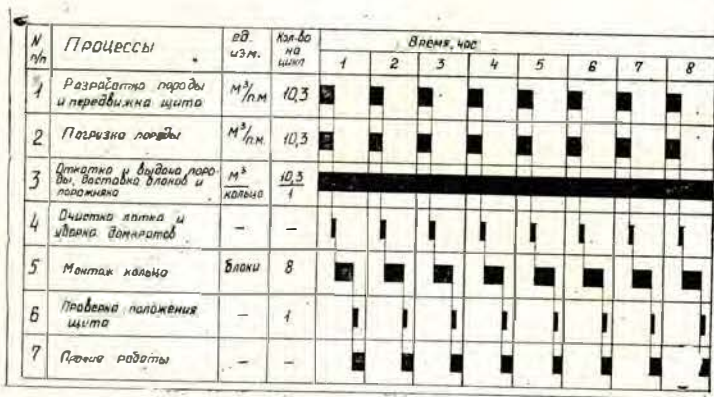 N п/п Процессы ед. изм. Кол-во на цикл Время, час
1 2 3 4 5 6 7 8
1 Разработка породы м³/п.м 10,3
и передвижка щита
2 Погрузка породы м³/п.м 10,3
3 Откатка и выдача поро-
ды, доставка блоков и м³/кольцо 10,3/1
порожняка
4 Очистка лотка и – –
уборка домкратов
5 Монтаж кольца блоки 8
6 Проверка положения – 1
щита
7 Прочие работы – –